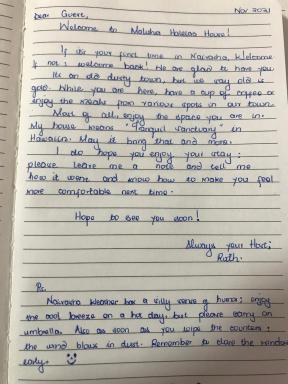 Nov 2021
Dear Guest,
Welcome to Maluhia Hale House!
If it's your first time in Naivasha, welcome
if not; welcome back! We are glad to have you.
Its an old dusty town, but we say old is
gold. While you are here, have a cup of coffee or
enjoy the meals from various spots in our town.
Most of all, enjoy the space you are in.
My house means "Tranquil Sanctuary" in
Hawaiian. May it bring that and more.
I do hope you enjoy your stay;
please leave me a note and tell me
how it went and know how to make you feel
more comfortable next time.
Hope to see you soon!
Always your Host;
Ruth.
Ps.
Naivasha weather has a silly sense of humor; enjoy
the cool breeze on a hot day, but please carry an
umbrella. Also as soon as you wipe the counters;
the wind blows in dust. Remember to close the windows
early.